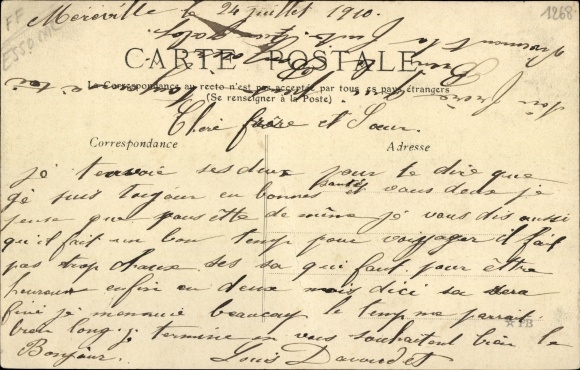 Méréville le 24 juillet 1910.
1268
FF
ESSONNE
CARTE POSTALE
La Correspondance au recto n'est pas acceptée par tous les pays étrangers
(Se renseigner à la Poste)
Chère frère et Sœur.
Correspondance
Adresse
je tenvoie ses deux pour te dire que
gé suis toujour en bonnes santés et vous deux je
pense que vous ette de même je vous dis aussi
qu'il fait un bon temp pour voyager il fait
pas trop chaux ses sa qui faut pour êttre
heureux enfin en deux mois dici sa sera
fini je m'ennuie beaucoup le temp me parrait
bien long. je termine en vous souhaitent bien le
Bonjour. Louis Davoudet
TB